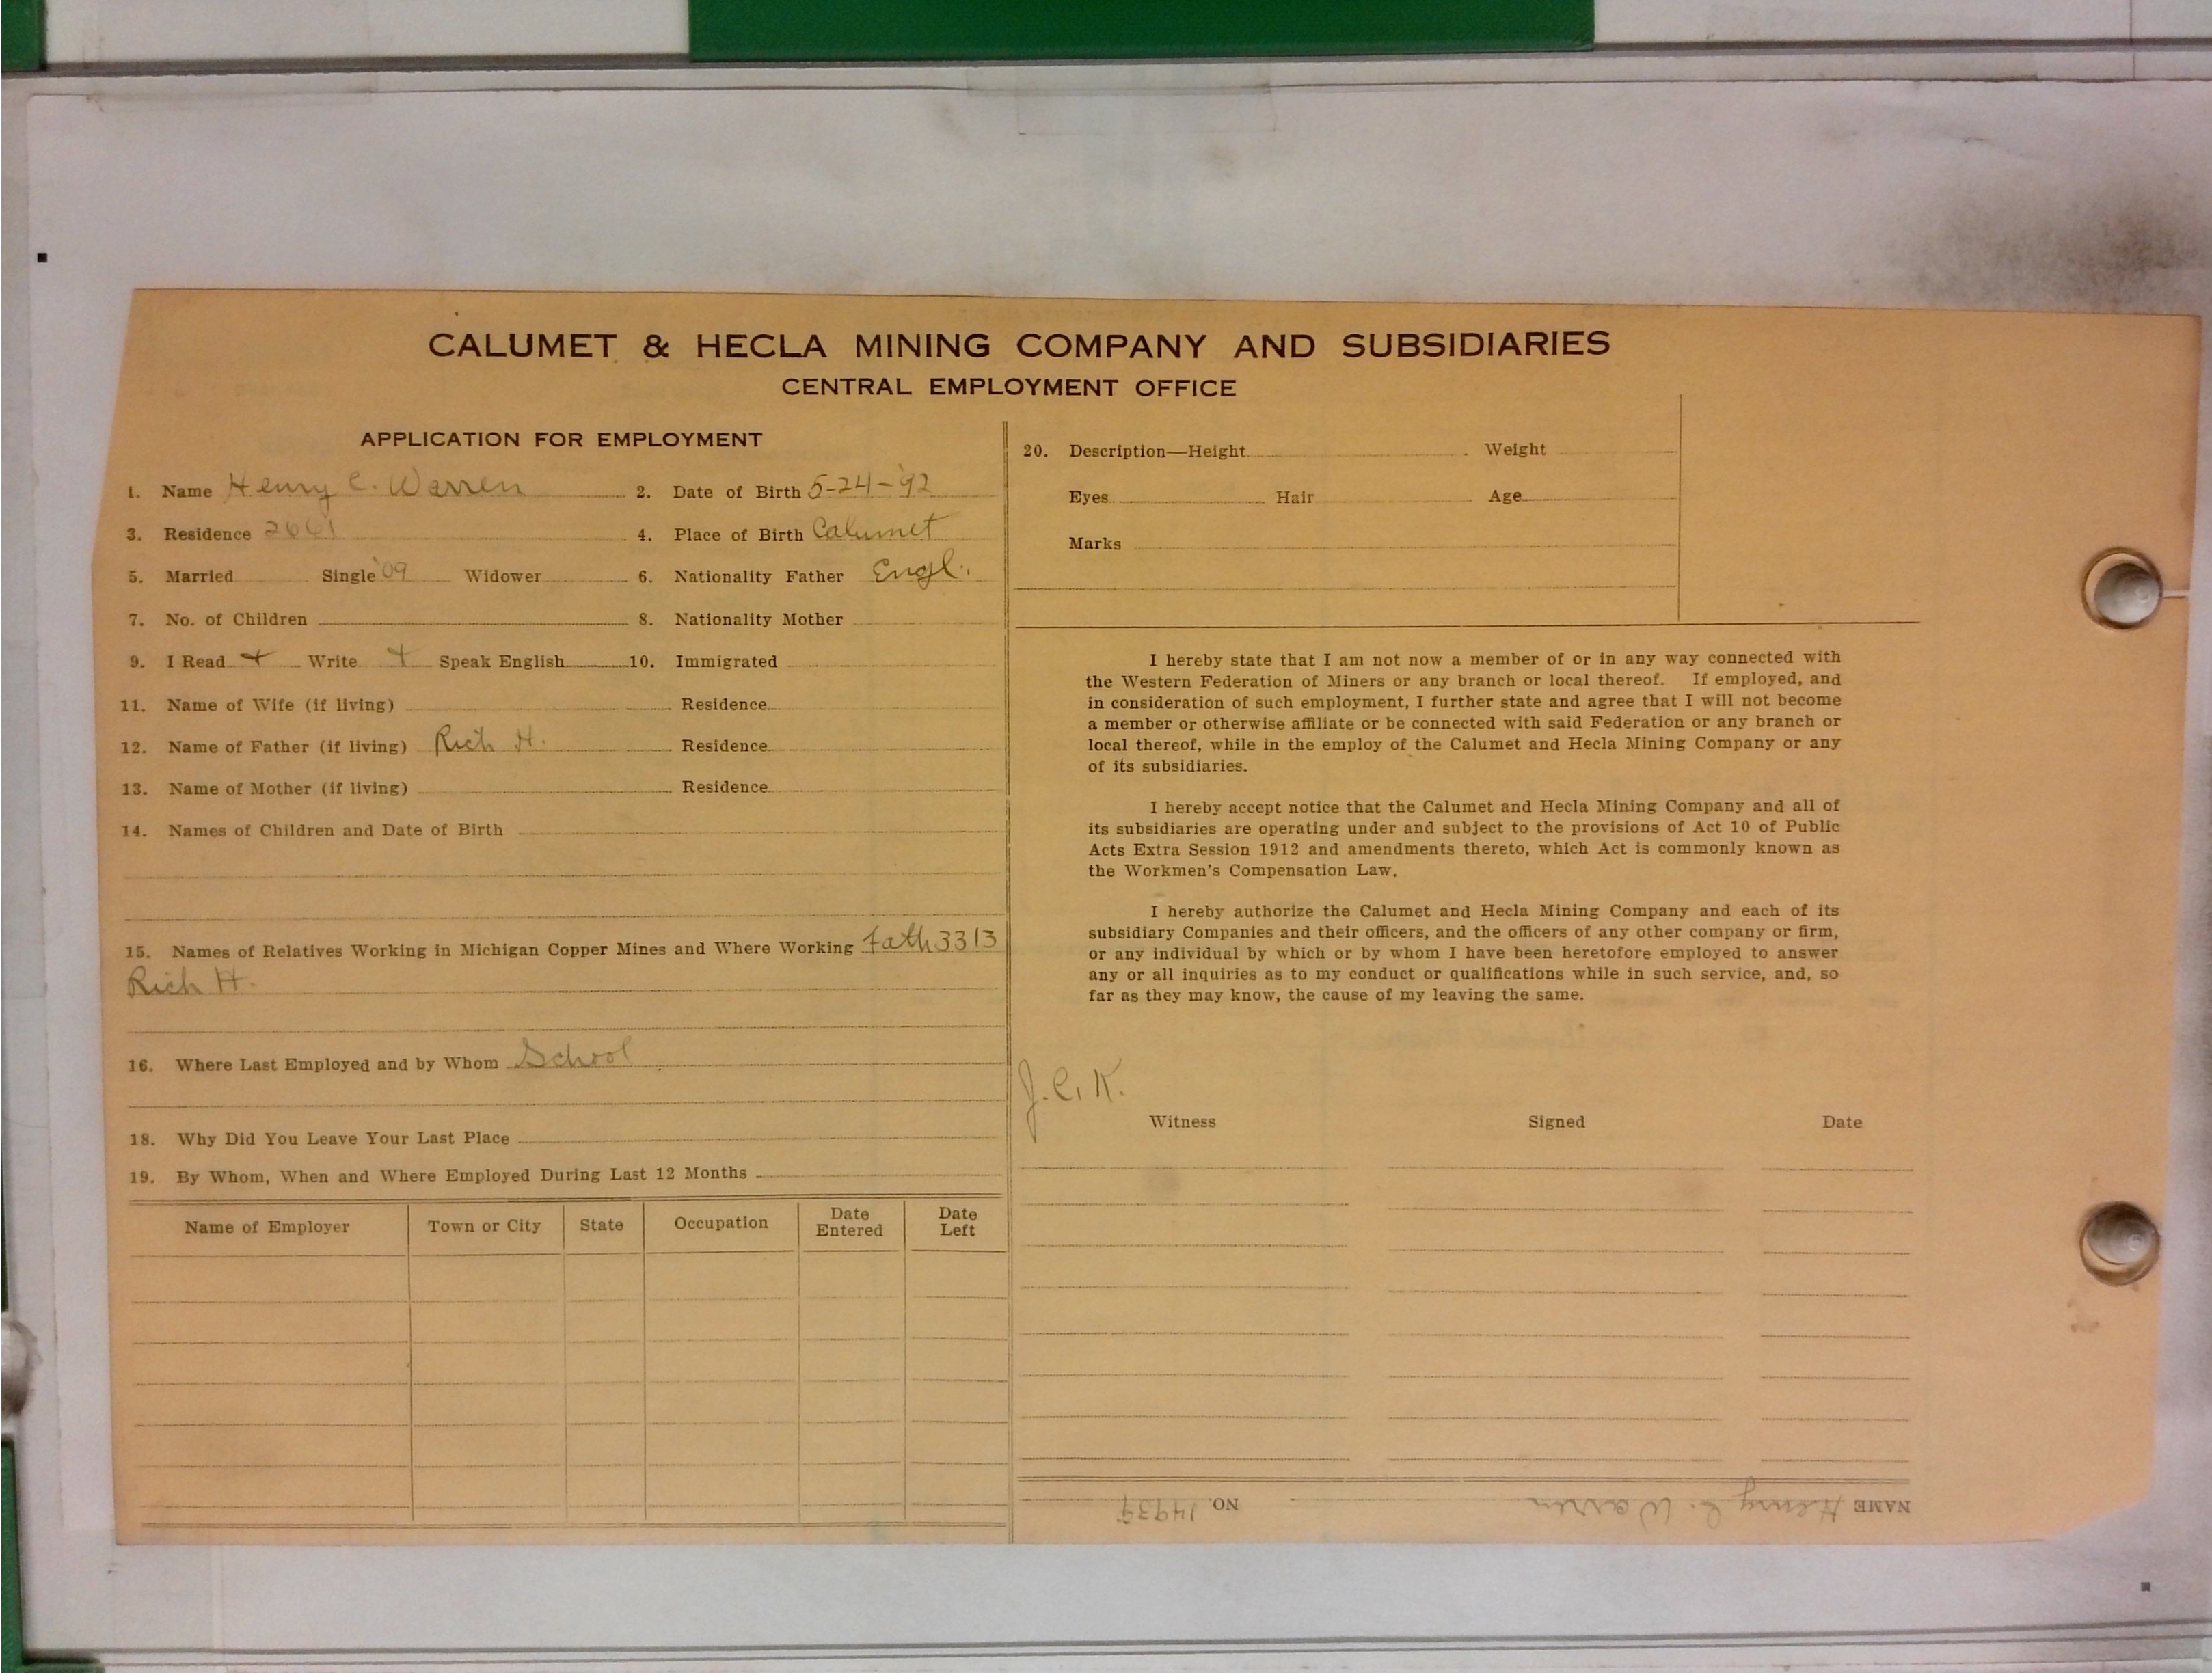 CALUMET & HECLA MINING COMPANY AND SUBSIDIARIES
CENTRAL EMPLOYMENT OFFICE
APPLICATION FOR EMPLOYMENT
1. Name Henry C. Warren 2. Date of Birth 5-24-'92
3. Residence 4. Place of Birth Calumet
5. Married Single '09 Widower 6. Nationality Father Engl.
7. No. of Children 8. Nationality Mother
9. I Read + Write + Speak English 10. Immigrated
11. Name of Wife (if living) Residence
12. Name of Father (if living) Rich H. Residence
13. Name of Mother (if living) Residence
14. Names of Children and Date of Birth
15. Names of Relatives Working in Michigan Copper Mines and Where Working Fath 3313
Rich H.
16. Where Last Employed and by Whom School
18. Why Did You Leave Your Last Place
19. By Whom, When and Where Employed During Last 12 Months
Name of Employer Town or City State Occupation Date Entered Date Left
20. Description—Height Weight
Eyes Hair Age
Marks
I hereby state that I am not now a member of or in any way connected with
the Western Federation of Miners or any branch or local thereof. If employed, and
in consideration of such employment, I further state and agree that I will not become
a member or otherwise affiliate or be connected with said Federation or any branch or
local thereof, while in the employ of the Calumet and Hecla Mining Company or any
of its subsidiaries.
I hereby accept notice that the Calumet and Hecla Mining Company and all of
its subsidiaries are operating under and subject to the provisions of Act 10 of Public
Acts Extra Session 1912 and amendments thereto, which Act is commonly known as
the Workmen's Compensation Law.
I hereby authorize the Calumet and Hecla Mining Company and each of its
subsidiary Companies and their officers, and the officers of any other company or firm,
or any individual by which or by whom I have been heretofore employed to answer
any or all inquiries as to my conduct or qualifications while in such service, and, so
far as they may know, the cause of my leaving the same.
J.C.K.
Witness Signed Date
NAME Henry C. Warren NO.